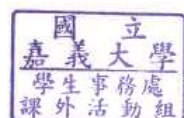 國立
嘉義大學
學生事務處
課外活動組